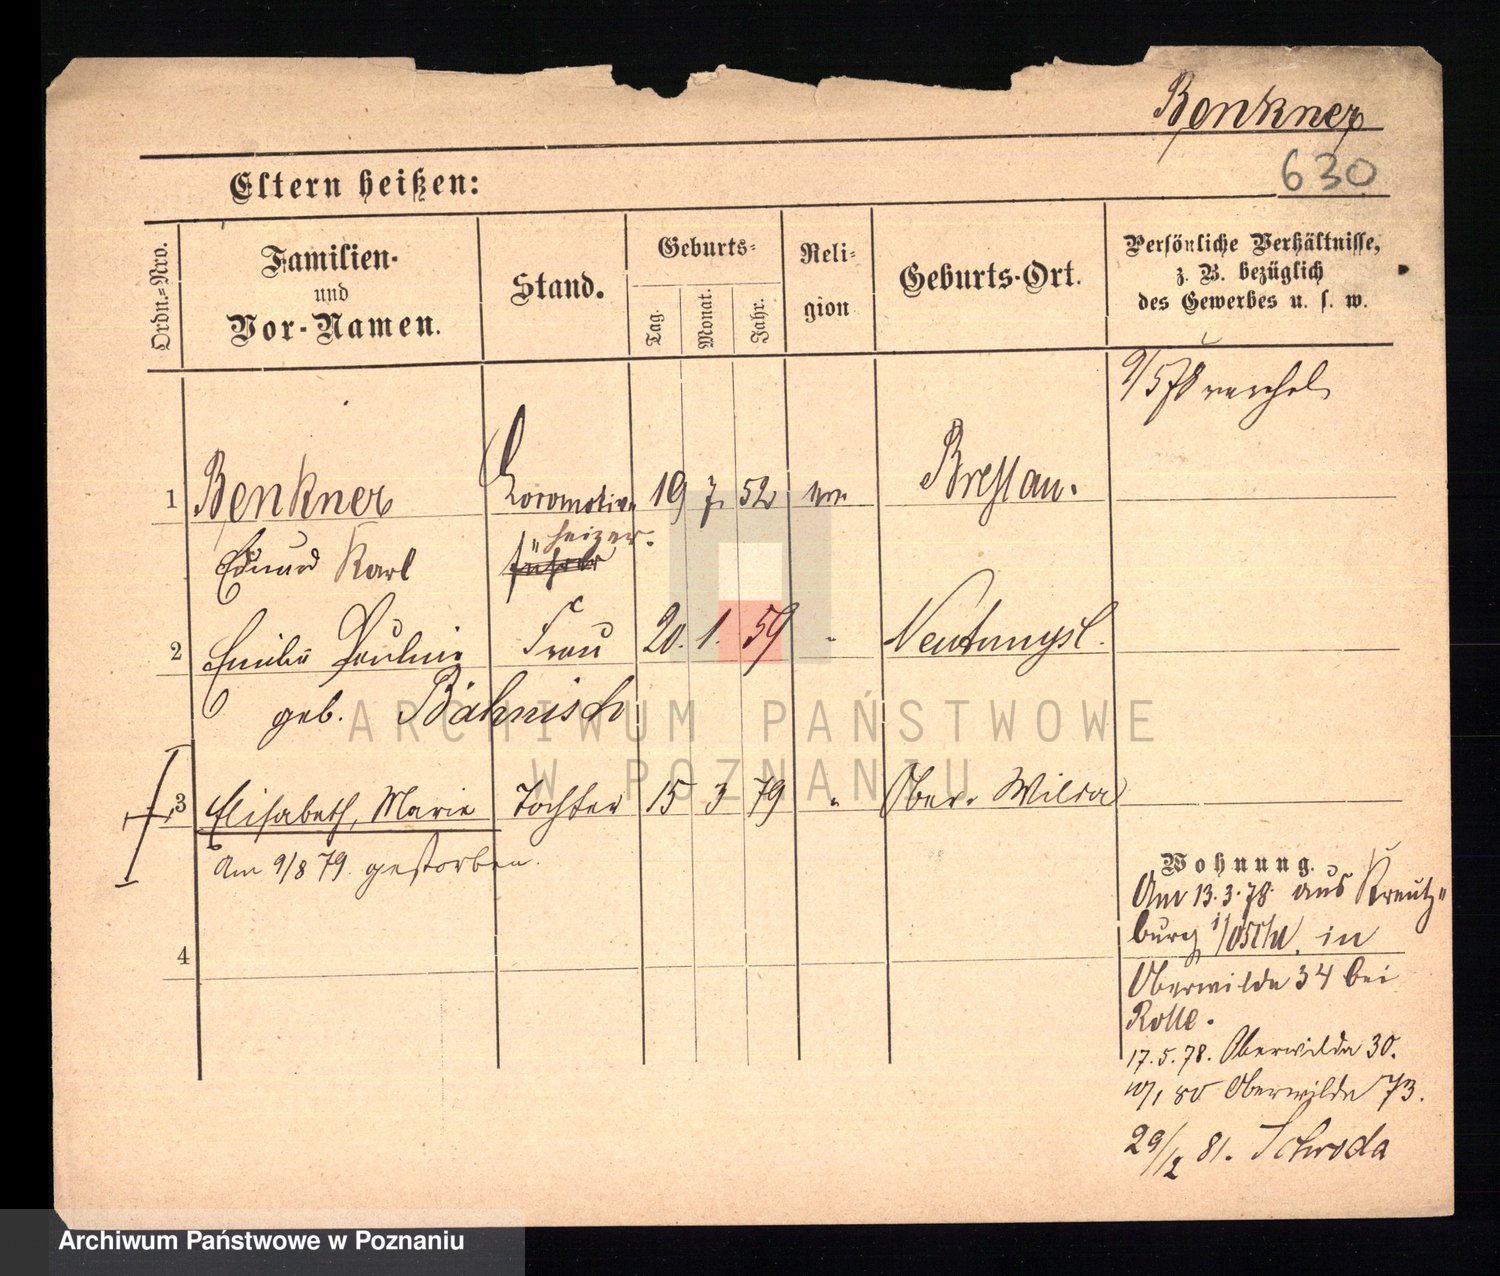 Benkner
630
Eltern heißen:
Ordn.-Nro.
Familien-
und
Vor-Namen.
Stand.
Geburts-
Tag.
Monat.
Jahr.
Reli-
gion
Geburts-Ort.
Persönliche Verhältnisse,
z. B. bezüglich
des Gewerbes u. s. w.
9/5 78
1 Benkner Locomotiv 19 7. 52 Breslau.
heizer.
führer
Eduard Karl
2 Emilie Pauline Frau 20. 1. 59 " Neutomysl.
geb. Bähnisch
3 Elisabeth, Marie Tochter 15 3 79 " Ober. Wilda
Am 9/8 79 gestorben.
4
Wohnung.
Am 13.3.78. aus Kreutz-
burg in
Oberwilda 34 bei
Rolle.
17.5.78. Oberwilda 30.
80 Oberwilda 73.
29/12 81. Schroda
ARCHIWUM PAŃSTWOWE
W POZNANIU
Archiwum Państwowe w Poznaniu